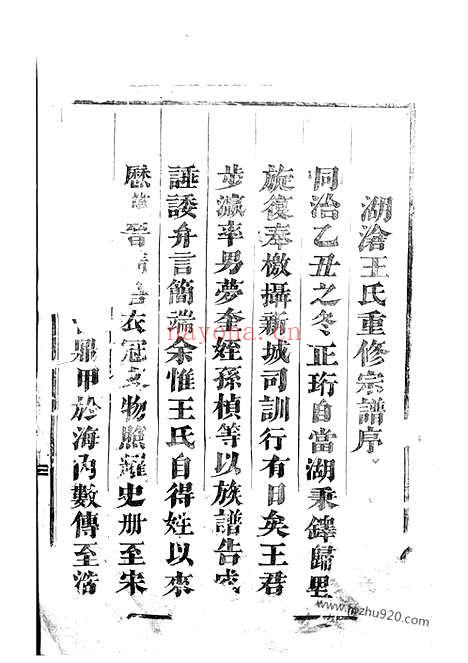 湖滄王氏重修宗譜序
同治乙丑之冬正珩自當湖秉鐸歸里
旋復奉檄攝新城司訓行有日矣王君
步瀛率男夢奎姪孫楨等以族譜告成
諈諉弁言簡端余惟王氏自得姓以來
歷 晉 衣冠文物照耀史册至宋
鼎甲於海內數傳至浩
nayona.cn
fozhu920.com